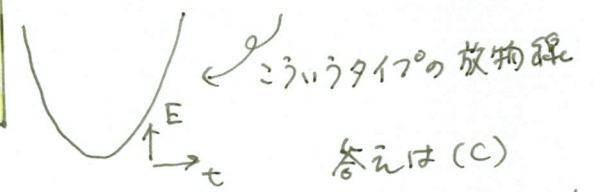 こういうタイプの放物線
E
t
答えは(C)